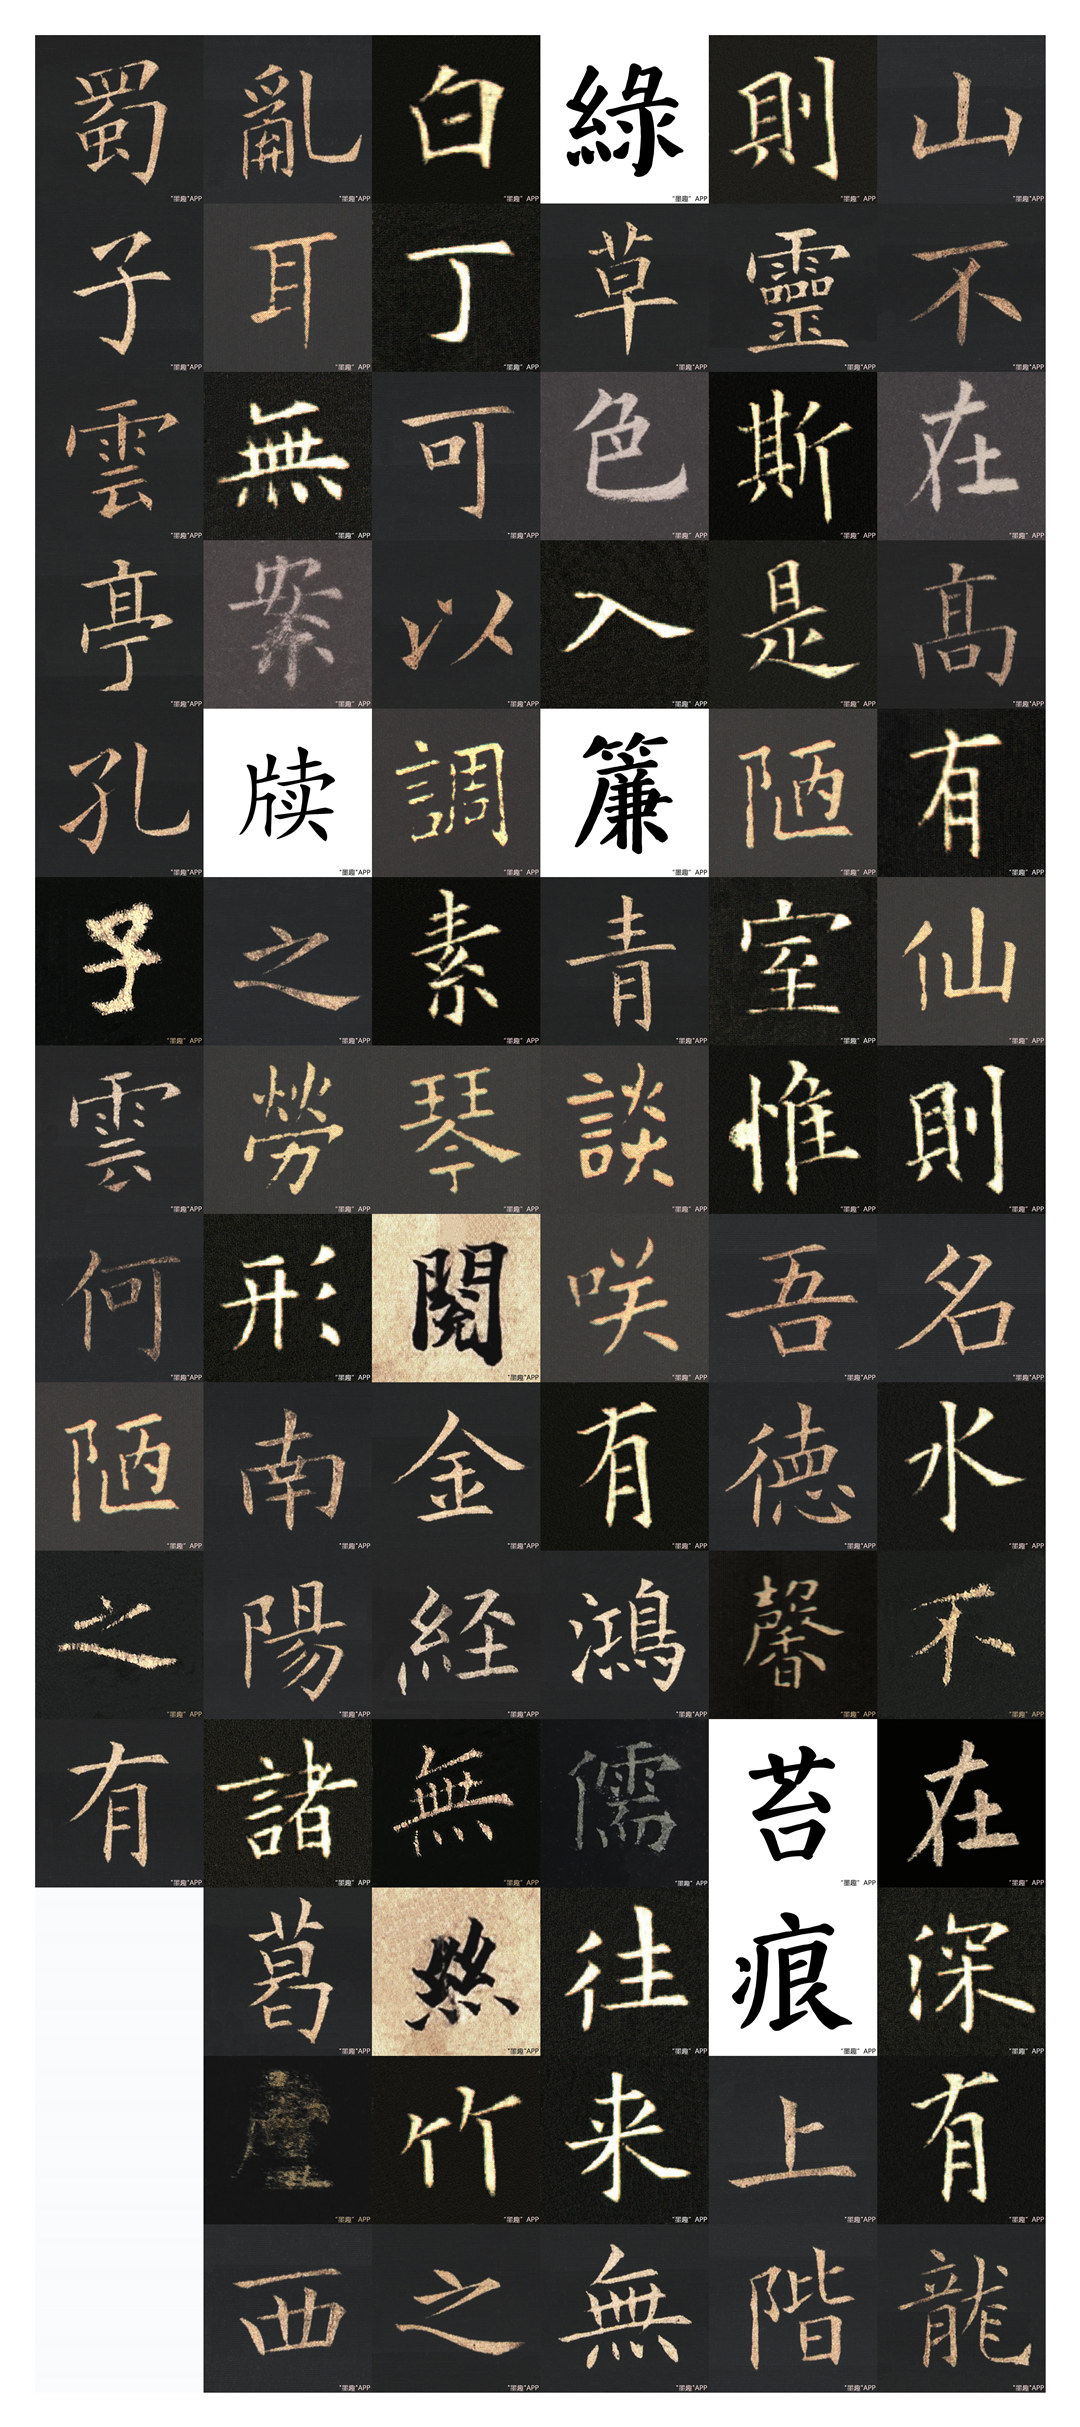 山不在高有仙則名水不在深有龍
則靈斯是陋室惟吾德馨苔痕上階
綠草色入簾青談咲有鴻儒往来無
白丁可以調素琴閱金経無絲竹之
亂耳無案牍之勞形南陽諸葛廬西
蜀子雲亭孔子雲何陋之有
"墨趣"APP